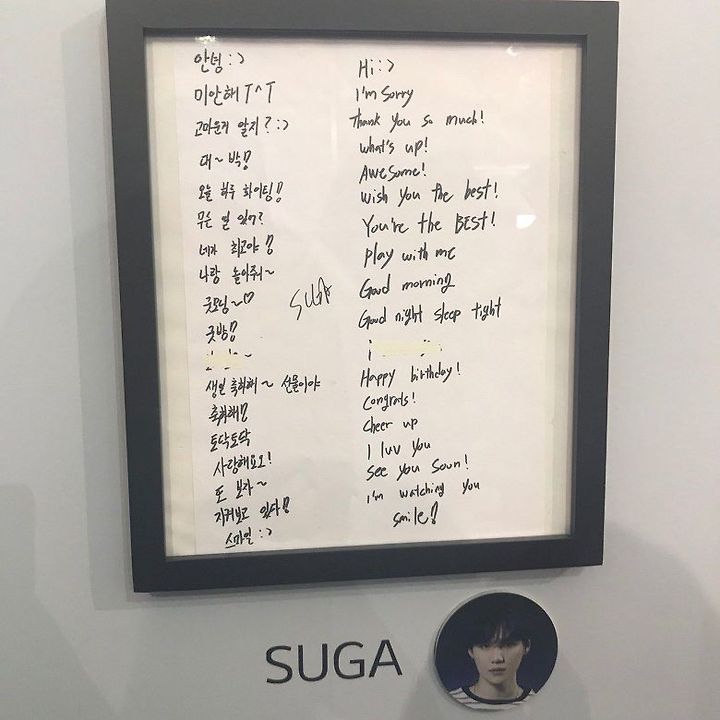 안녕 : >
미안해 T^T
고마운거 알지? : >
대~박!
오늘 하루 화이팅!
무슨 일 있어?
네가 최고야!
나랑 놀아줘~
굿모닝~♡
굿밤!
생일 축하해~ 선물이야
축하해!!
토닥토닥
사랑해요!
또 보자~
지켜보고 있다!
스마일 : >
SUGA
Hi : >
I'm Sorry
Thank you so much!
what's up!
Awesome!
wish you the best!
You're the BEST!
play with me
Good morning
Good night sleep tight
Happy birthday!
Congrats!
Cheer up
I luv you
See you soon!
i'm watching you
smile!
SUGA